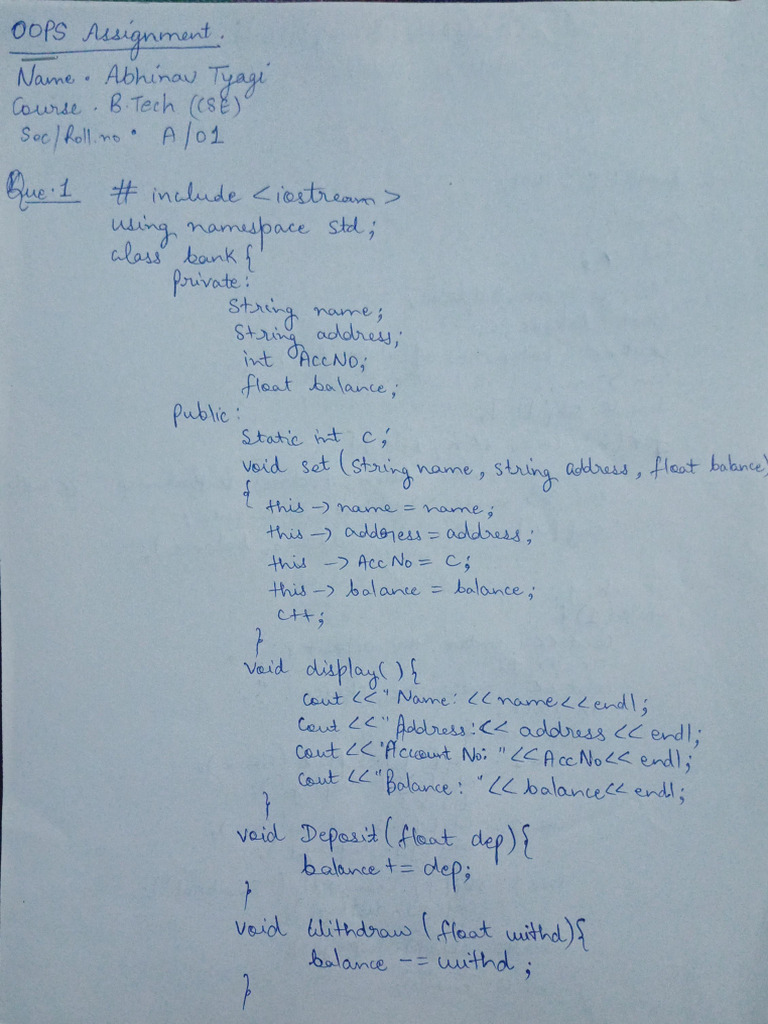 OOPS Assignment.
Name. Abhinav Tyagi
Course. B.Tech (CSE)
Sec/Roll.no. A/01
Que.1 # include <iostream>
using namespace std;
class bank{
private:
String name;
String address;
int AccNO;
float balance;
public:
Static int c;
void set (string name, string address, float balance)
{ this -> name = name;
this -> address = address;
this -> AccNo = C;
this -> balance = balance;
c++;
}
void display(){
cout <<" Name: <<name<<endl;
cout <<" Address:<< address << endl;
cout <<"Account No: "<<AccNo<< endl;
cout <<"Balance: "<< balance<< endl;
}
void Deposit(float dep){
balance += dep;
}
void Withdraw (float withd){
balance -= withd;
}